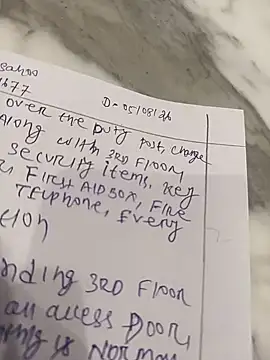 sahoo
1677 D- 05/08/26
over the Duty post, change
Along with 3RD Floor
security items, key
First AID Box, Fire
Telphone, Every
tion
nding 3RD Floor
all access Door,
is Normal